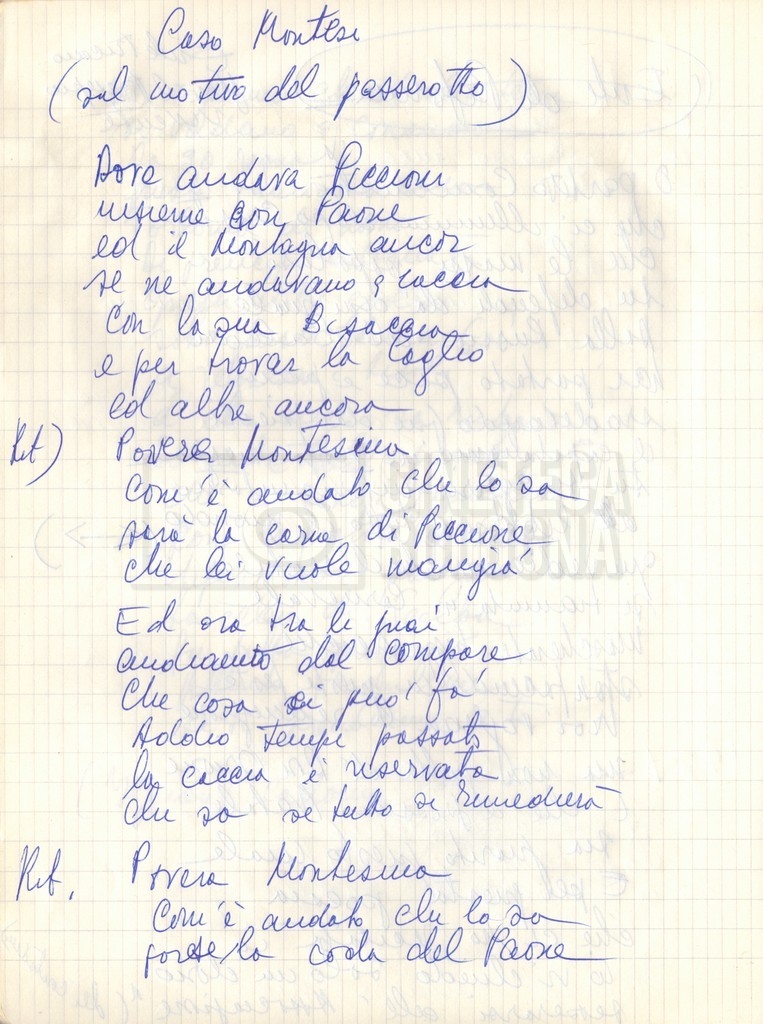 Caso Montesi
(sul motivo del passerotto)
Dove andava Piccioni
insieme con Paone
ed il Montagna ancor
se ne andavano a caccia
con la sua Bisaccia
e per trovar la Caglio
ed altre ancora
Rit) Povera Montesina
com'è andato chi lo sa
sarà la carne di Piccione
che lei vuole mangià
Ed ora tra le guai
andranno dal compare
che cosa si può fà
Addio tempi passati
la caccia è riservata
chi sa se tutto si rimedierà
Rit. Povera Montesina
com'è andato chi lo sa
forse la coda del Paone
CINETECA
BOLOGNA